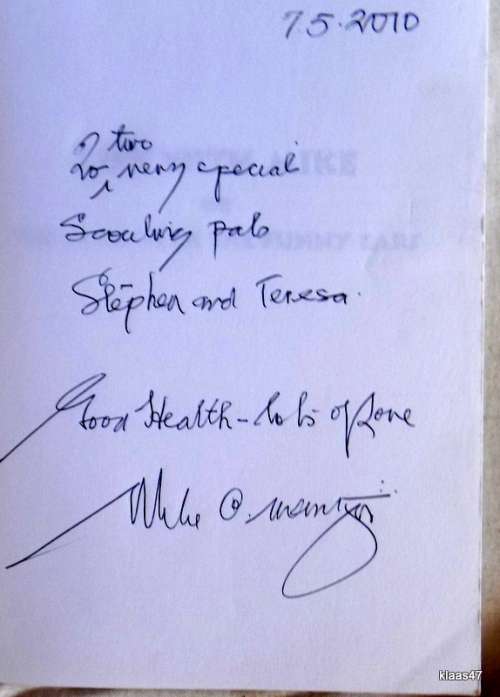 7.5.2010
two
To very special
Scouting pals
Stephen and Teresa.
Good Health - lots of love
Mike
klaas47